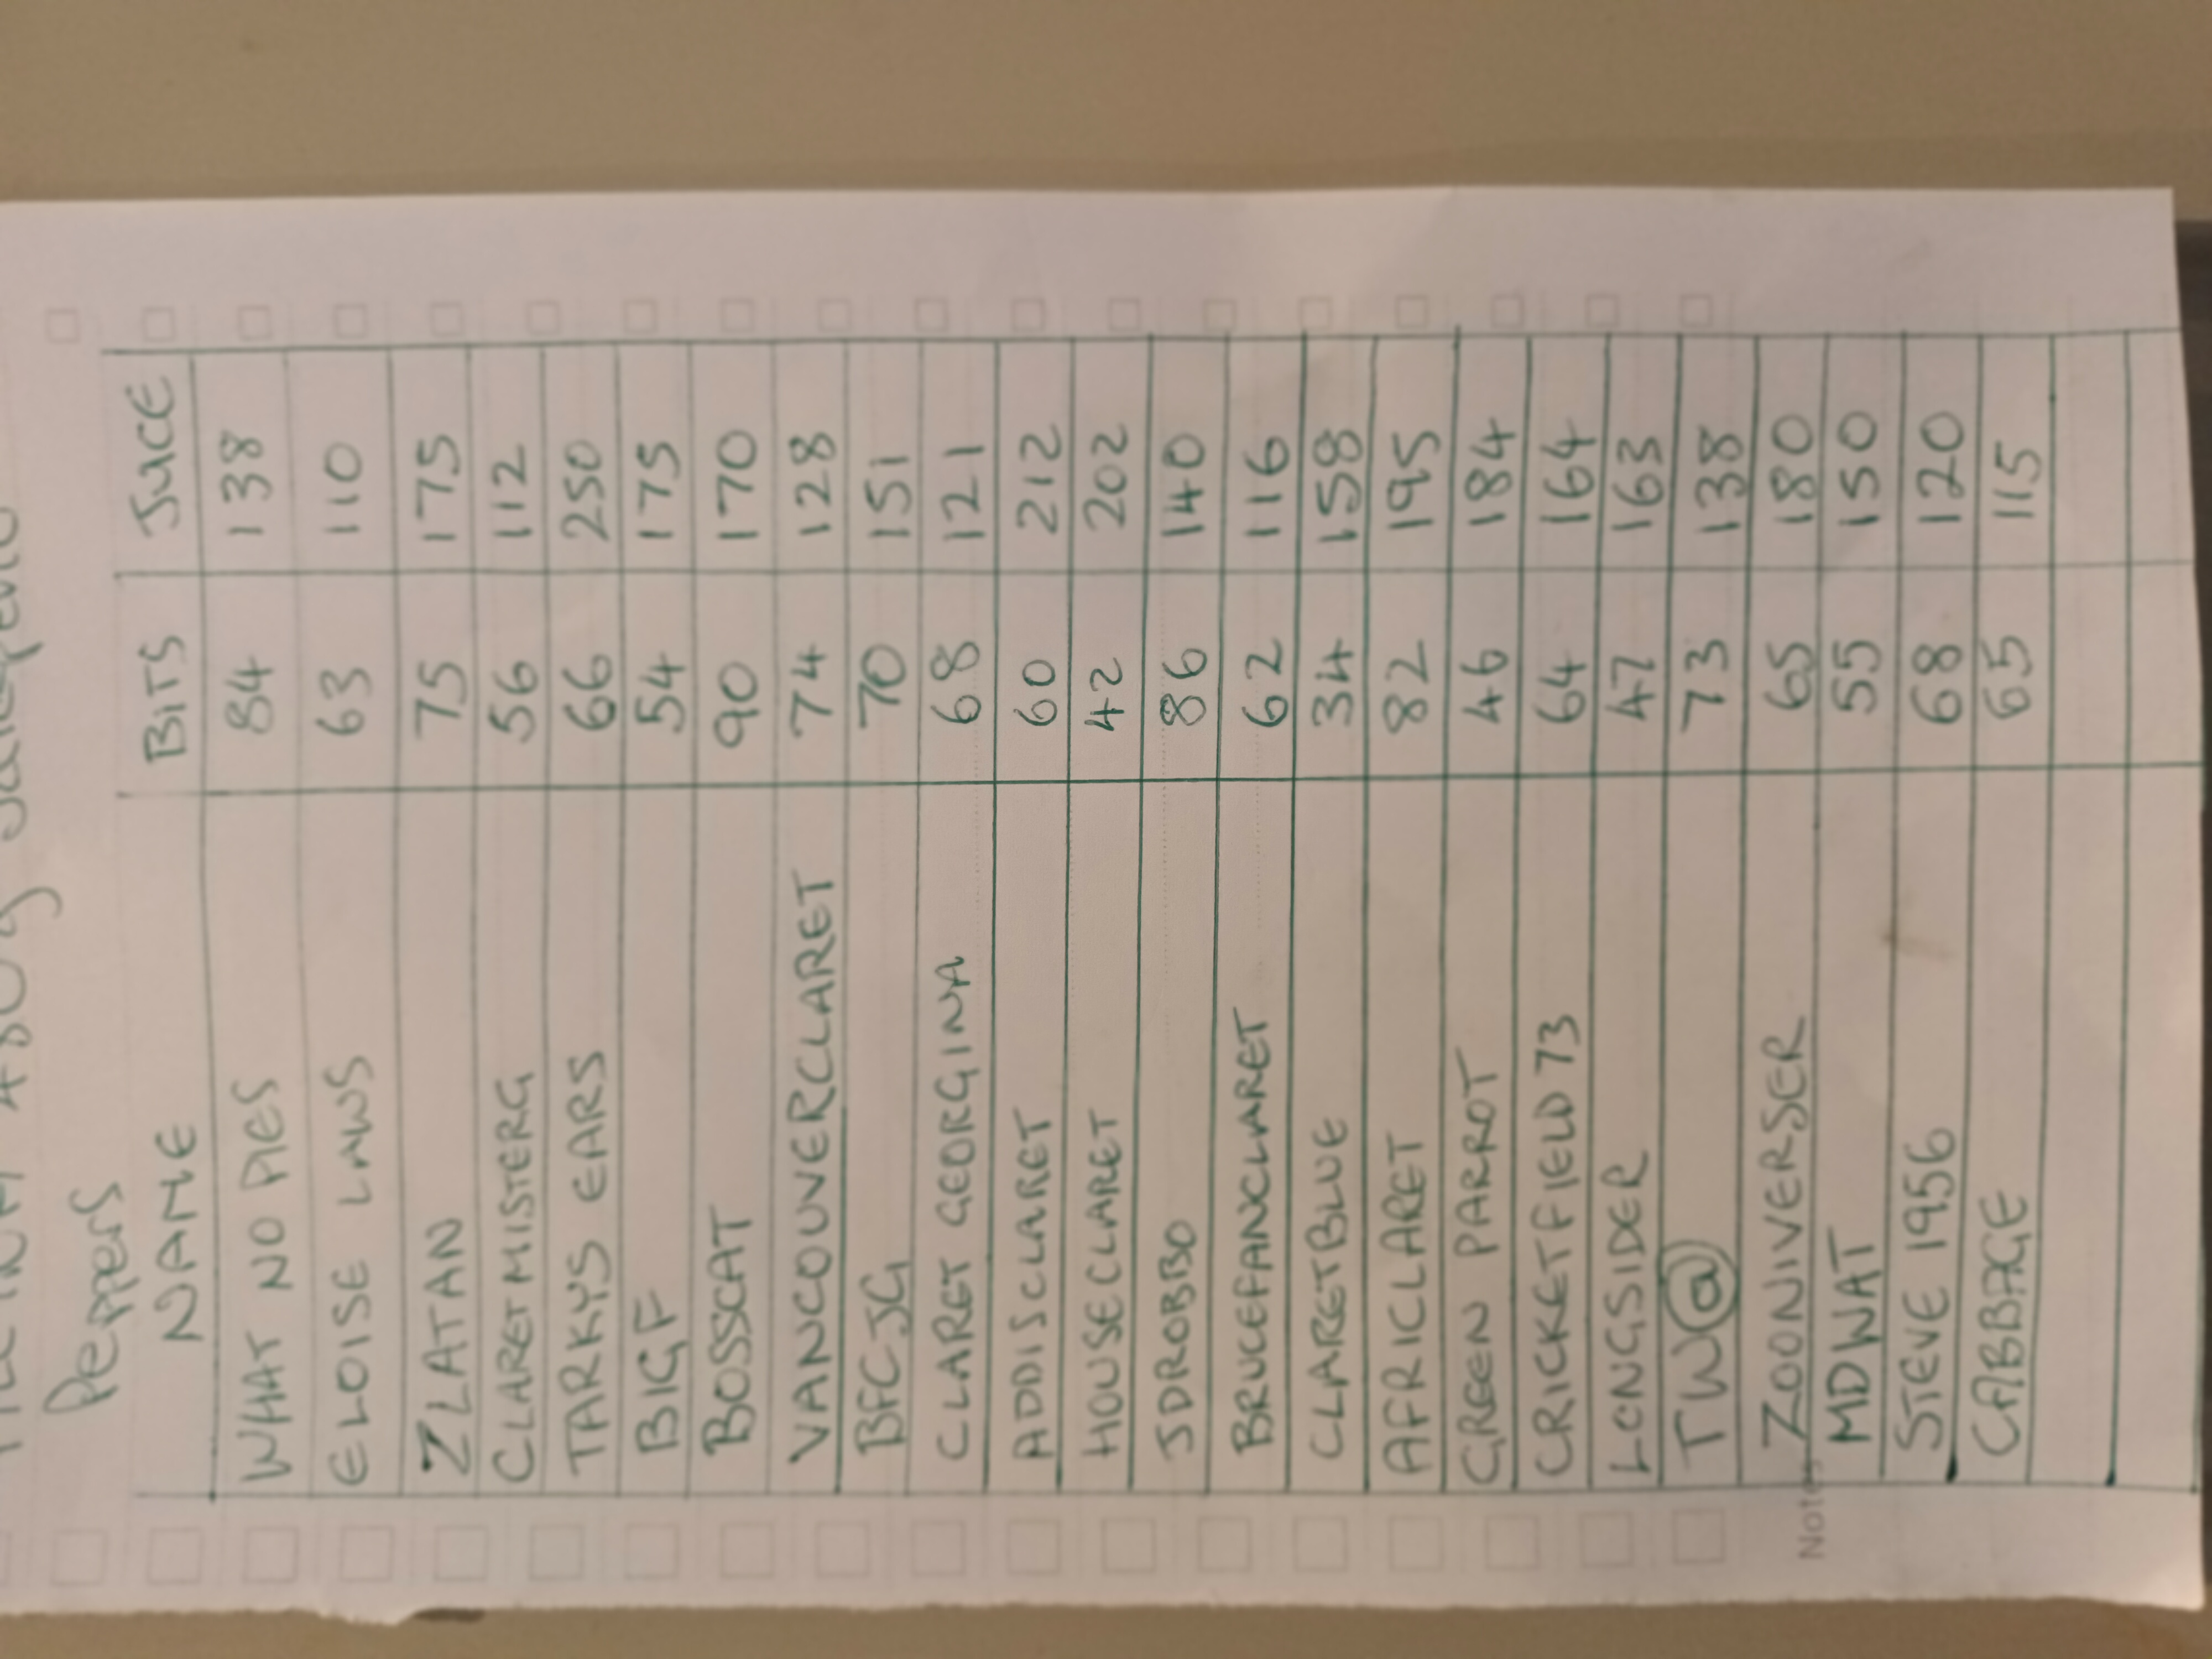 480g Jalapeno
Peppers
NAME BITS JUCE
WHAT NO PIES 84 138
ELOISE LAWS 63 110
ZLATAN 75 175
CLARETMISTERG 56 112
TARKYS EARS 66 250
BIGF 54 175
BOSSCAT 90 170
VANCOUVERCLARET 74 128
BFCJG 70 151
CLARET GEORGINA 68 121
ADDISCLARET 60 212
HOUSECLARET 42 202
JDROBBO 86 140
BRUCEFANCLARET 62 116
CLARETBLUE 34 158
AFRICLARET 82 195
GREEN PARROT 46 184
CRICKETFIELD 73 64 164
LONGSIDER 47 163
TW@ 73 138
ZOONIVERSER 65 180
MDWAT 55 150
STEVE 1956 68 120
CABBAGE 65 115
Notes